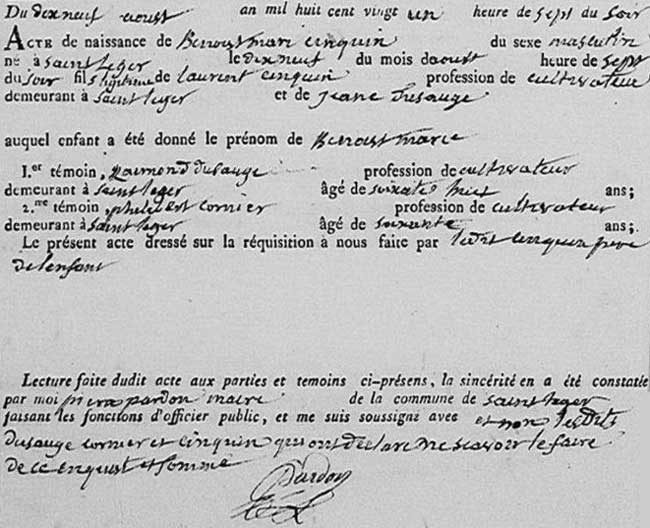 Du dix neuf aoust an mil huit cent vingt un heure de sept du soir
ACTE de naissance de Benoist marie cinquin du sexe masculin
né à saint leger le dix neuf du mois daoust heure de sept
du soir fils legitime de laurent cinquin profession de cultivateur
demeurant à saint leger et de jeane Dusauge
auquel enfant a été donné le prénom de Benoist marie
1.er témoin, Raimond dusauge profession de cultivateur
demeurant à saint leger âgé de soixante huit ans;
2.me témoin, philibert cornier profession de cultivateur
demeurant à saint leger âgé de soixante ans;.
Le présent acte dressé sur la réquisition à nous faite par ledit cinquin pere
de lenfant
Lecture faite dudit acte aux parties et temoins ci-présens, la sincérité en a été constatée
par moi piere pardon maire de la commune de saint leger
faisant les fonctions d'officier public, et me suis soussigné avec et non lesdits
Dusauge cornier et cinquin qui ont déclaré ne scavoir le faire
de ce enquist et sommé
Pardon